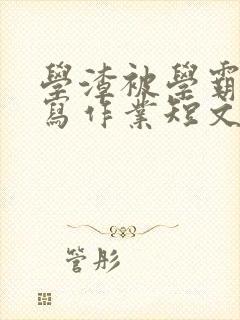 學渣被學霸
寫作業短文
管彤